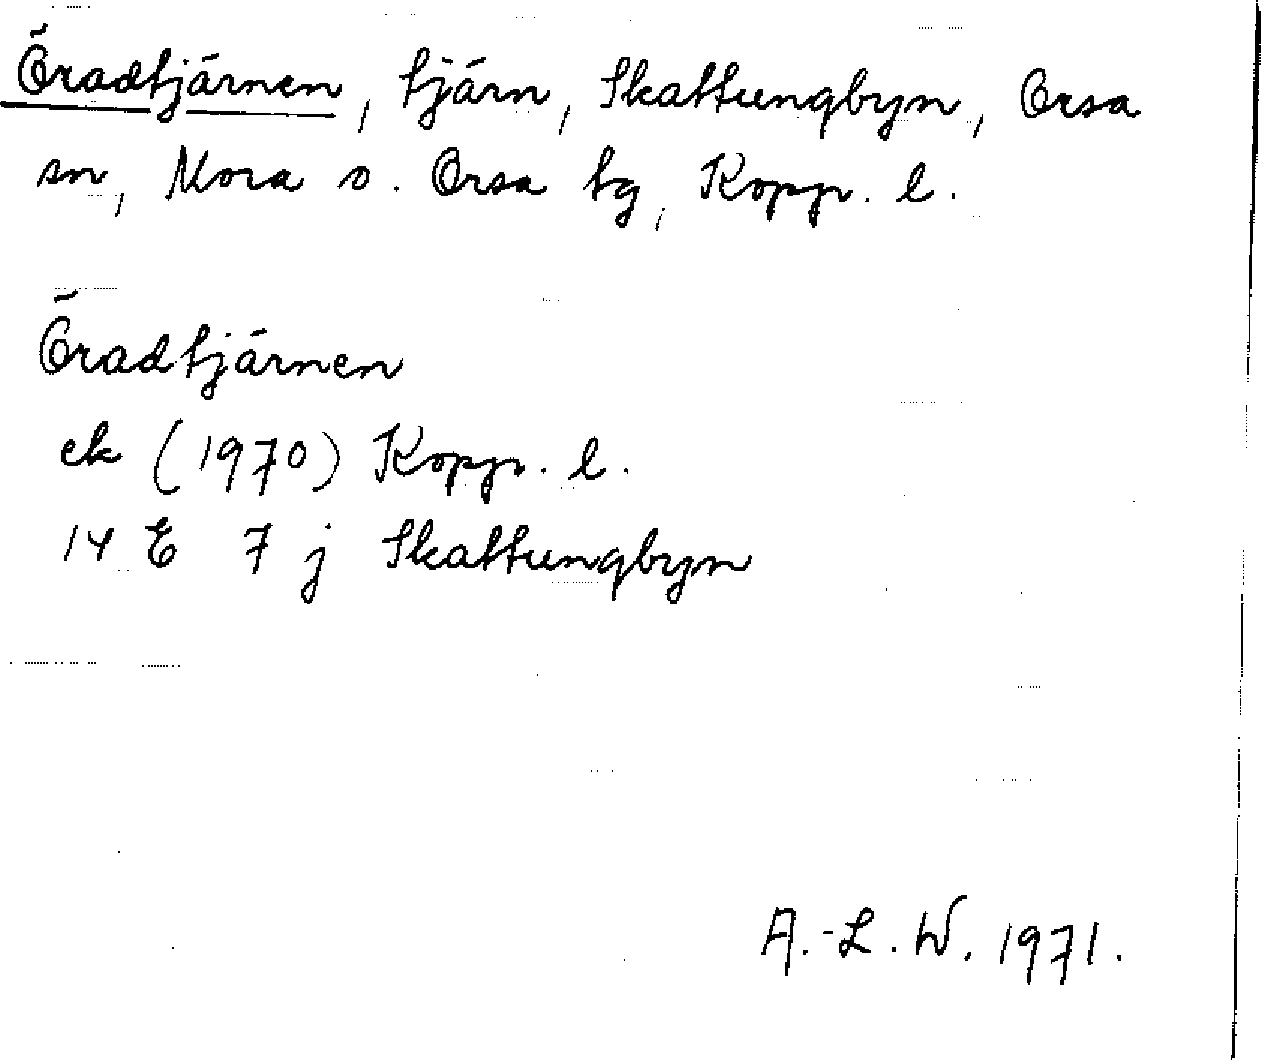 Öradtjärnen, tjärn, Skattungbyn, Orsa
sn, Mora o. Orsa tg, Kopp. l.
Öradtjärnen
ek (1970) Kopp. l.
14 E 7 j Skattungbyn
A.-L. W. 1971.